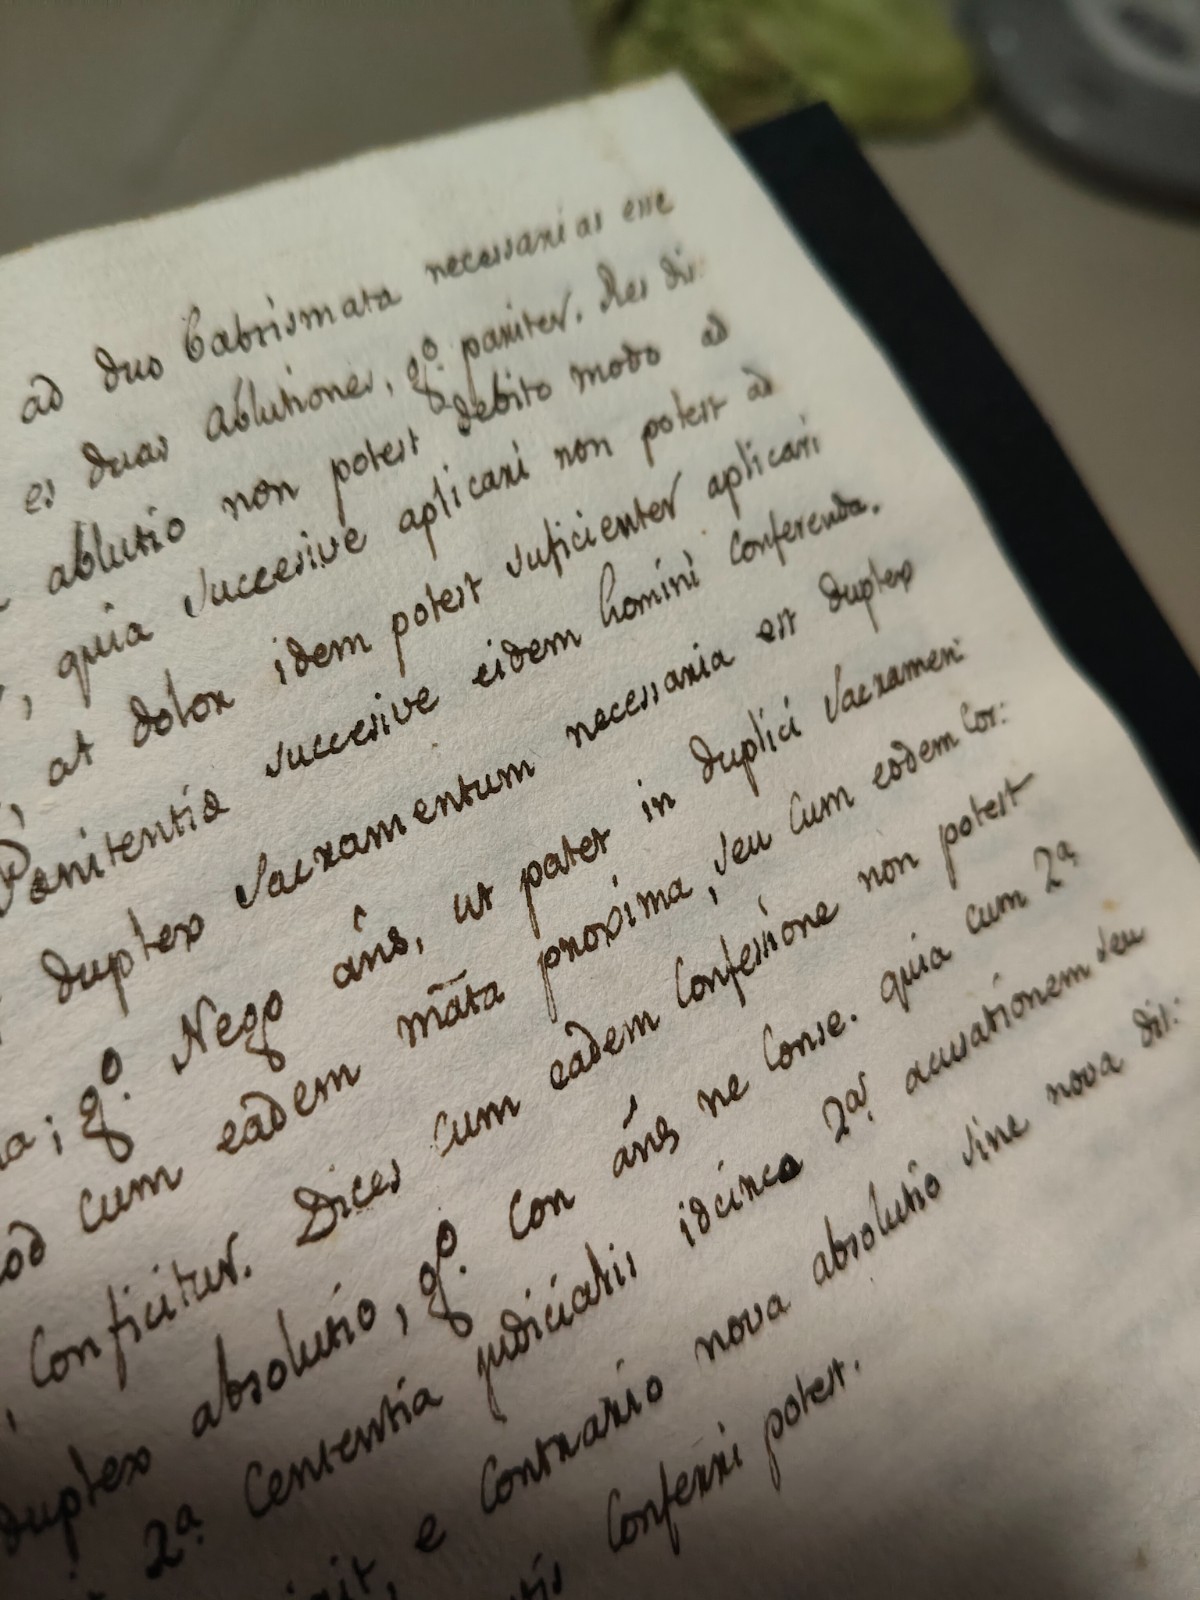 ad duo Babtismata necessarias esse
es duas ablutiones, g.º pariter. Res dis:
ablutio non potest debito modo ad
, quia succesive aplicari non potest ad
, at dolor idem potest suficienter aplicari
Pœnitentia succesive eidem homini conferenda.
duplex sacramentum necessaria est duplex
na; g.º Nego âns, ut patet in duplici sacramen:
od cum eadem māta proxima, seu cum eodem cor:
conficitur. Dices cum eadem confessione non potest
duplex absolutio, g.º Con áns ne Conse. quia cum 2ª
2ª Centsentia judicialis idcirco 2ª. acusationem seu
e contrario nova absolutio sine nova dis:
conferri potest.